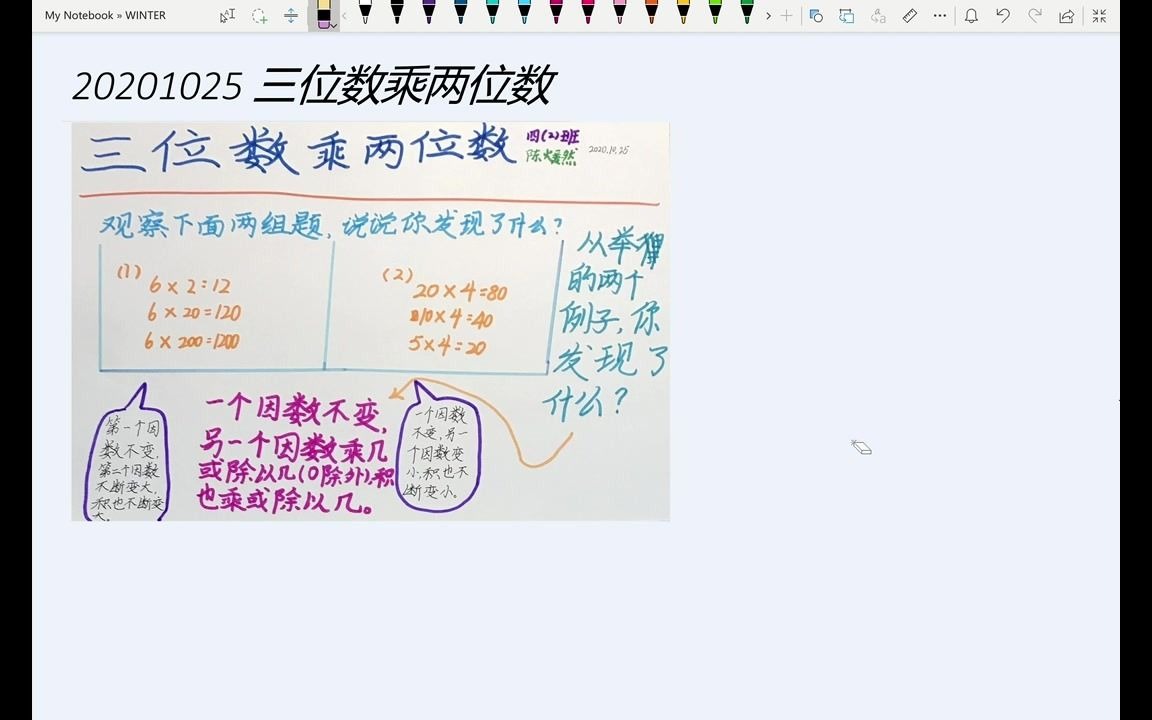 My Notebook » WINTER
20201025 三位数乘两位数
三位数乘两位数
四(2)班
陈火爱然
2020.10.25
观察下面两组题,说说你发现了什么?
(1)
6×2=12
6×20=120
6×200=1200
(2)
20×4=80
10×4=40
5×4=20
从举
的两个
例子,你
发现了
什么?
第一个因
数不变,
第二个因数
不断变大,
积也不断变
大。
一个因数不变,
另一个因数乘几
或除以几(0除外),积
也乘或除以几。
一个因数
不变,另一
个因数变
小,积也不
断变小。